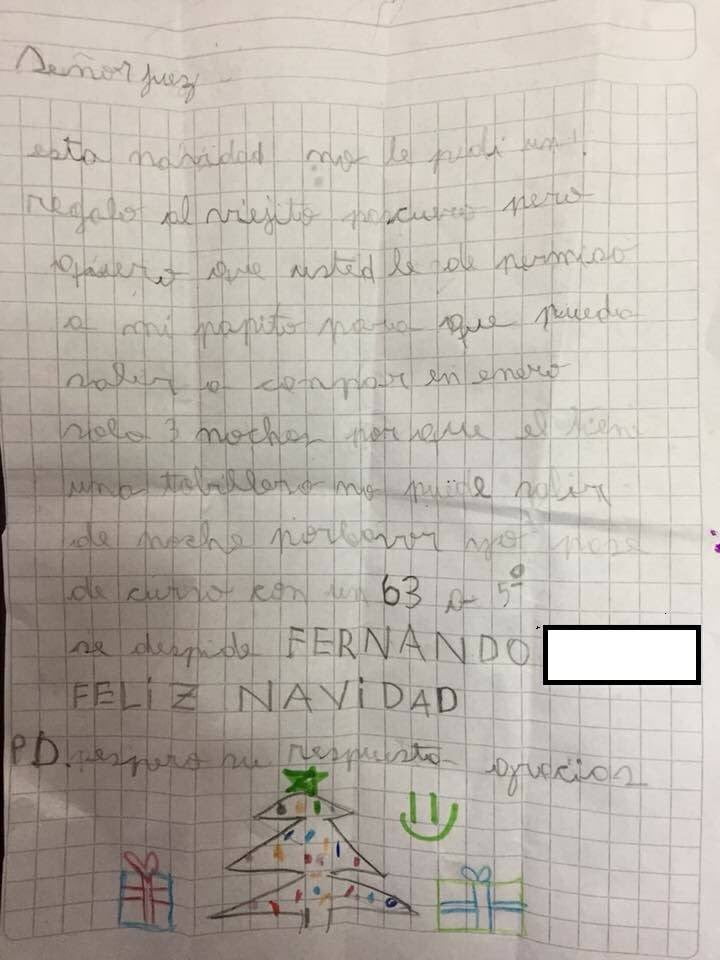 Señor juez
esta navidad no le pedi un
regalo al viejito pascuero pero
quiero que usted le de permiso
a mi papito para que pueda
salir a conpar en enero
solo 3 noches porque el tiene
una tobillera no puede salir
de noche porfavor yo pase
de curso con un 63 a 5º
se despide FERNANDO
FELIZ NAVIDAD
PD. espero su respuesta gracias